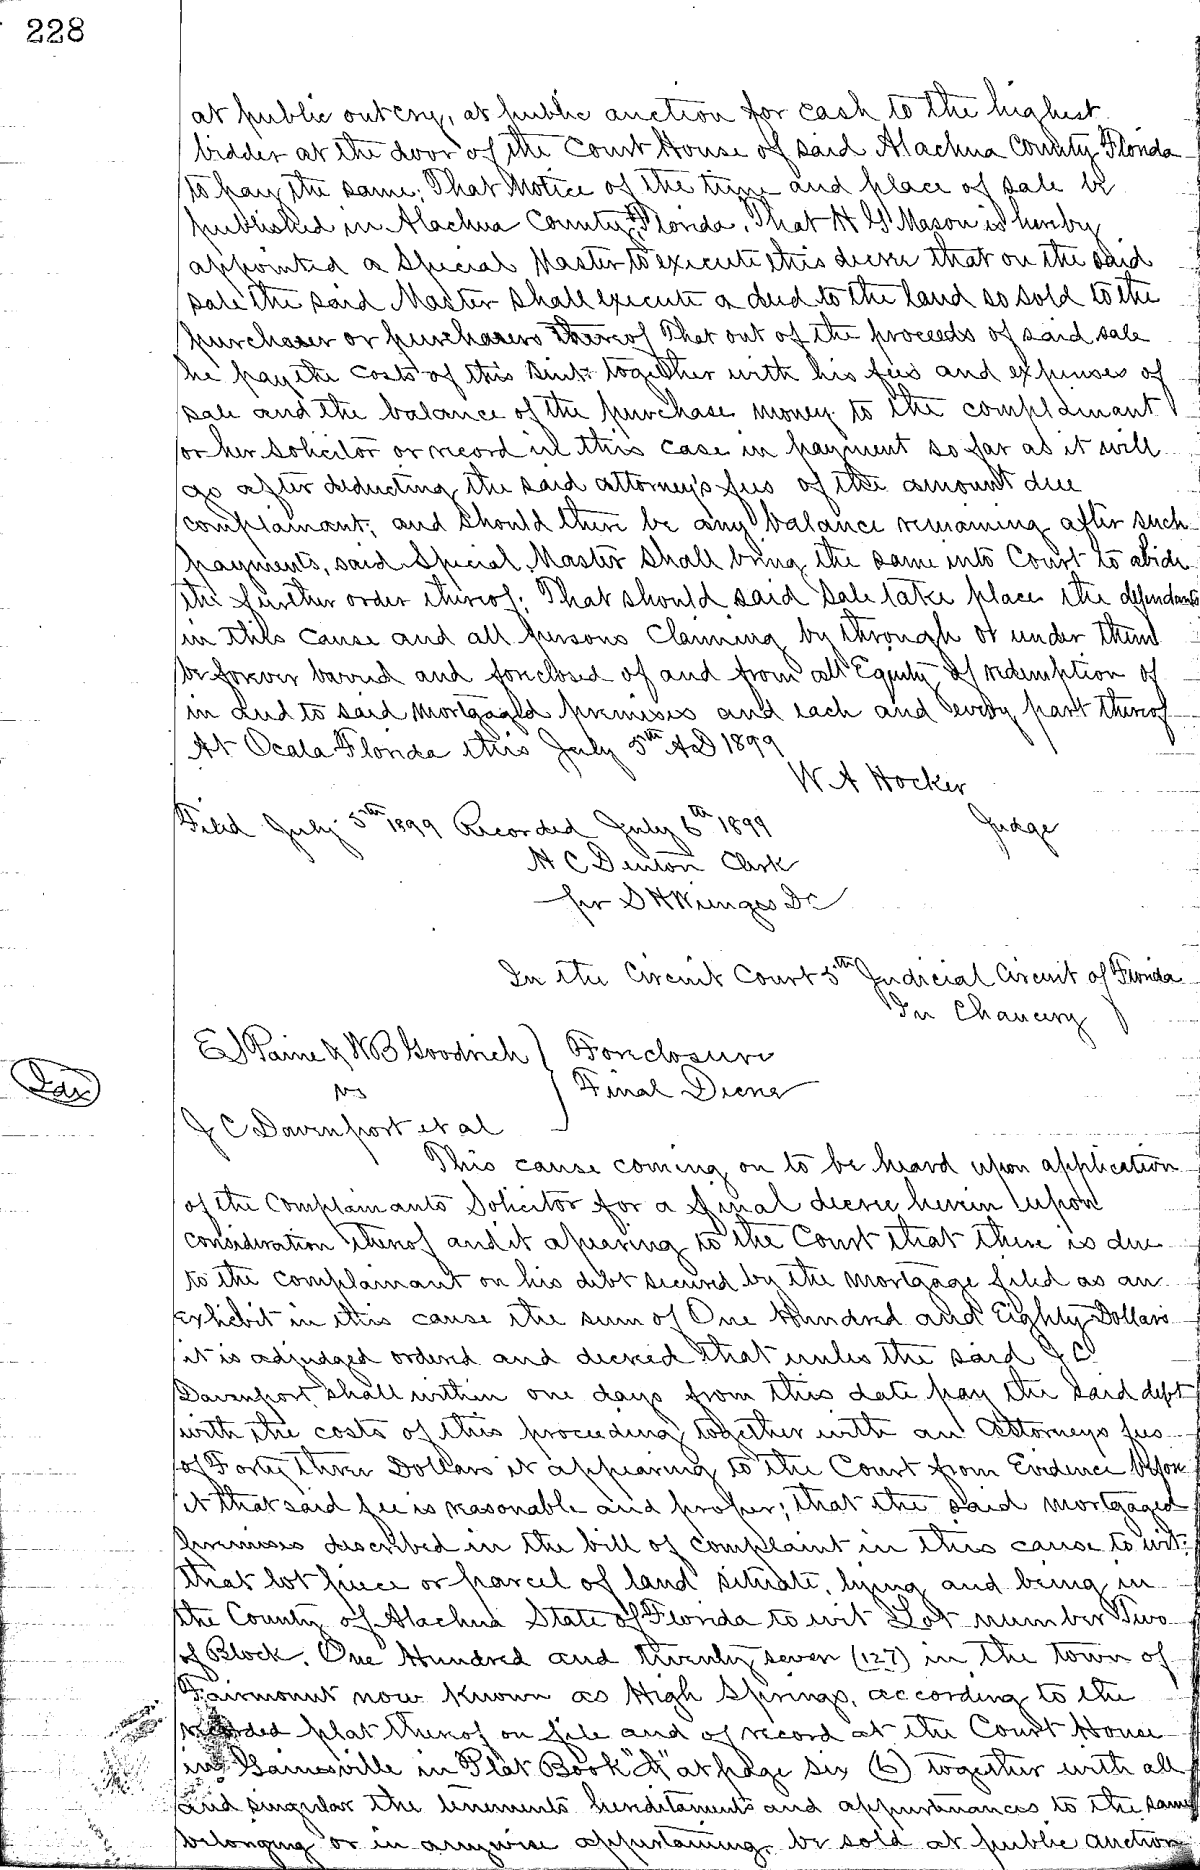 228
at public outcry, at public auction for cash to the highest
bidder at the door of the Court House of said Alachua County Florida
to pay the same; That Notice of the time and place of sale be
published in Alachua County Florida. That H G Mason is hereby
appointed a Special Master to execute this decree that on the said
sale the said Master shall execute a deed to the land so sold to the
purchaser or purchasers thereof That out of the proceeds of said sale
he pay the costs of this suit together with his fees and expenses of
sale and the balance of the purchase money to the complainant
or her Solicitor or record in this case in payment so far as it will
go after deducting the said attorney's fees of the amount due
complainant; and should there be any balance remaining after such
payments, said Special Master shall bring the same into Court to abide
the further order thereof; That should said Sale take place the defendants
in this cause and all persons Claiming by through or under them
be forever barred and foreclosed of and from all Equity of redemption of
in and to said Mortgaged premises and each and every part thereof
At Ocala Florida this July 5th AD 1899
W A Hocker
Filed July 5th 1899 Recorded July 6th 1899 Judge
H C Denton Clerk
per S H Wienges DC
In the Circuit Court 5th Judicial Circuit of Florida
In Chancery
E J Paine & W B Goodrich } Foreclosure
vs Final Decree
J C Davenport et al
This cause coming on to be heard upon application
of the Complainants Solicitor for a final decree herein upon
consideration thereof and it apearing to the Court that there is due
to the complainant on his debt secured by the mortgage filed as an
exhibit in this cause the sum of One Hundred and Eighty Dollars
it is adjudged ordered and decreed that unles the said J C
Davenport shall within one days from this date pay the said debt
with the costs of this proceeding together with an Attorneys fees
of Forty three Dollars it appearing to the Court from Evidence before
it that said fee is reasonable and proper; that the said mortgaged
premises described in the bill of complaint in this cause to wit:
that lot piece or parcel of land situate, lying and being in
the County of Alachua State of Florida to wit Lot number Two
of Block. One Hundred and twenty seven (127) in the town of
Fairmount now known as High Springs, according to the
recorded plat thereof on file and of record at the Court House
in Gainesville in Plat Book "A" at page six (6) together with all
and singular the tenements hereditaments and appurtenances to the same
belonging or in anywise appertaining be sold at public auction